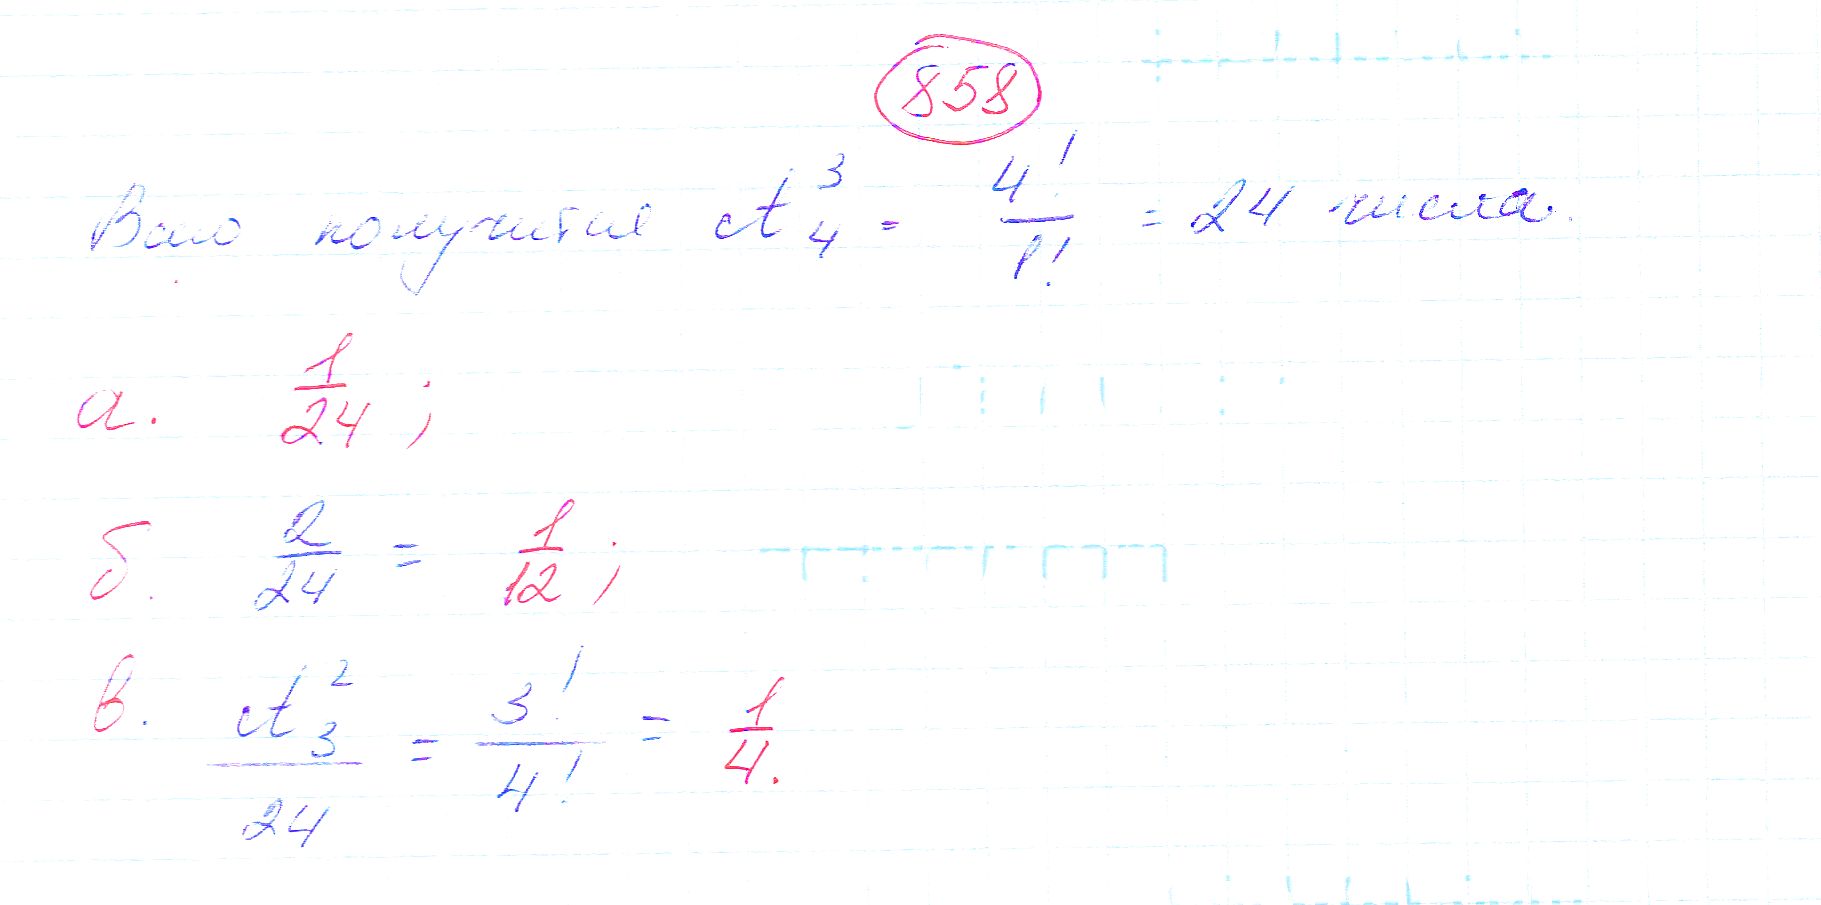 858
получится A₄³ = 4!/1! = 24 числа.
а. 1/24;
б. 2/24 = 1/12;
в. A₃²/24 = 3!/4! = 1/4.